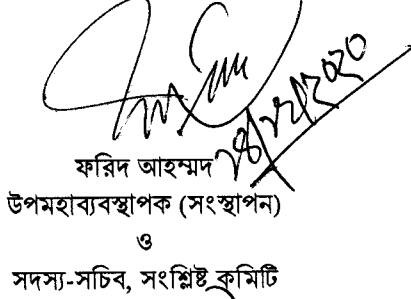 ফরিদ আহম্মদ
উপমহাব্যবস্থাপক (সংস্থাপন)
ও
সদস্য-সচিব, সংশ্লিষ্ট কমিটি